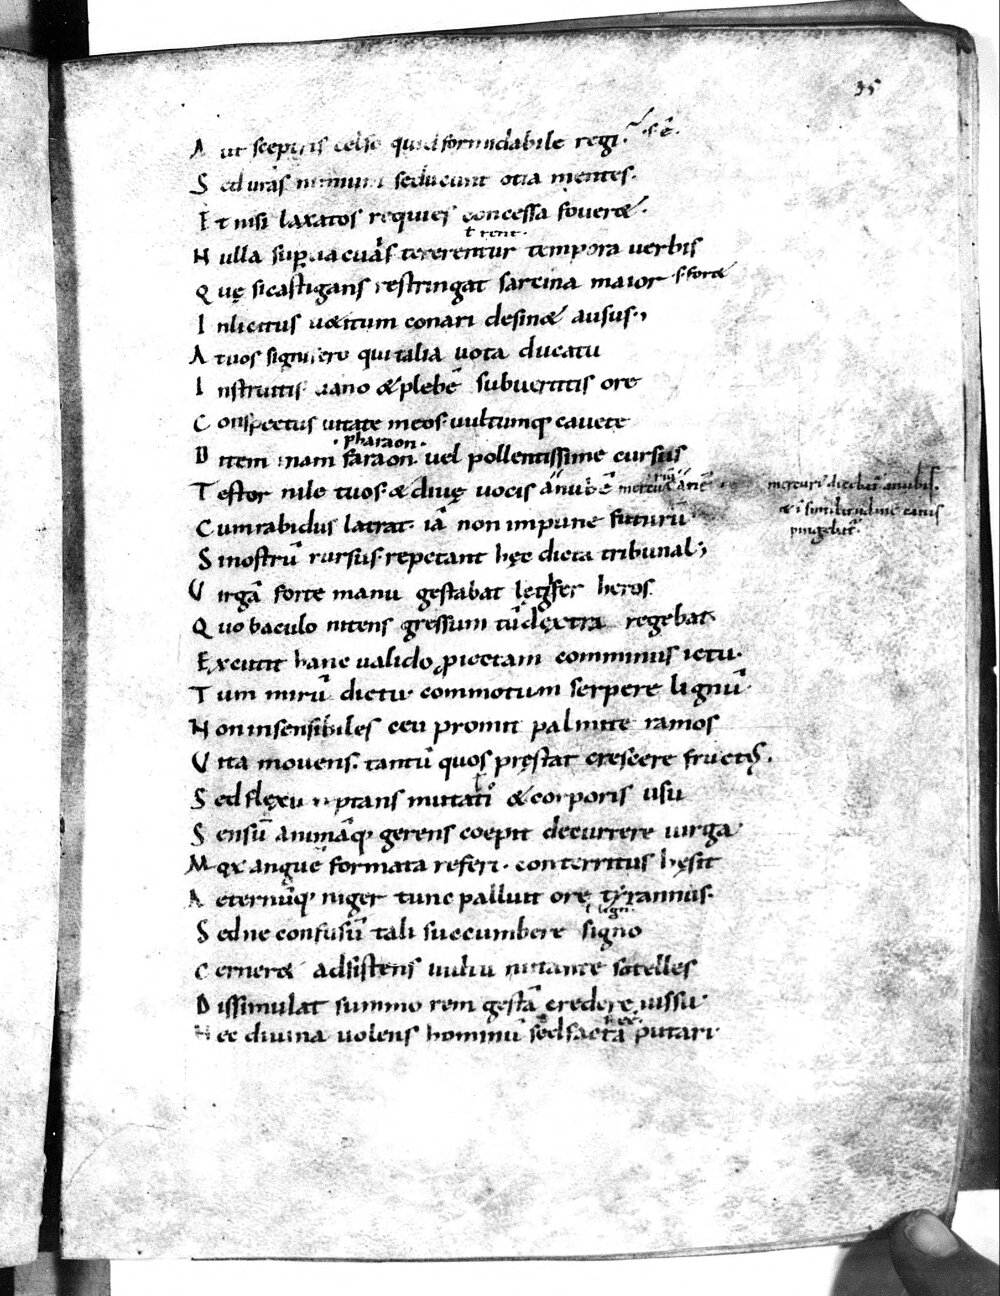 35
Aut sceptris celso quid formidabile regi. ·s· ē·
Sed uras nimium seducunt otia mentes·
Et nisi laxatos requies concessa fouerꝫ·
ł rent·
Nulla superuacuas tererentur tempora uerbis
Quę si castigans restringat sarcina maior ·s· fortꝫ
Inlicitus uꝫitum conari desinꝫ ausus·,
At uos signifero qui talia uota ducatu
Instruitis uano & plebē subuertitis ore
Conspectus uitate meos uultumq; cauete
·pharaon·
Ditem nam faraon uel pollentissime cursus
Testor nile tuos· & diuę uocis anubē
mercurii dicebat anubis·
& ī similitudinē canis
pingebat̄·
Cum rabidus latrat· iā non impune futurū
Si nostrū rursus repetant hęc dicta tribunal·,
Virgā forte manu gestabat legifer heros·
Quo baculo nitens gressum cū dextra regebat·
Excutit hanc ualido ꝓiectam comminus ictu·
Tum mirū dictu· commotum serpere lignū·
Non insensibiles ceu promit palmite ramos
Vita mouens· tantū quos pręstat crescere fructꝰ·
Sed flexu reptans mutati & corporis usu
Sensū animāq; gerens coepit decurrere uirga·
Mox anguē formata referi· conterritus hęsit
Aeternūq; niger tunc palluit ore tyrannus·
Sed ne confusū tali succumbere signo
Cernerꝫ adsistens uultu nutante satelles
Dissimulat summo rem gestā credere iussu·
Nec diuina uolens hominū sed facta putari·